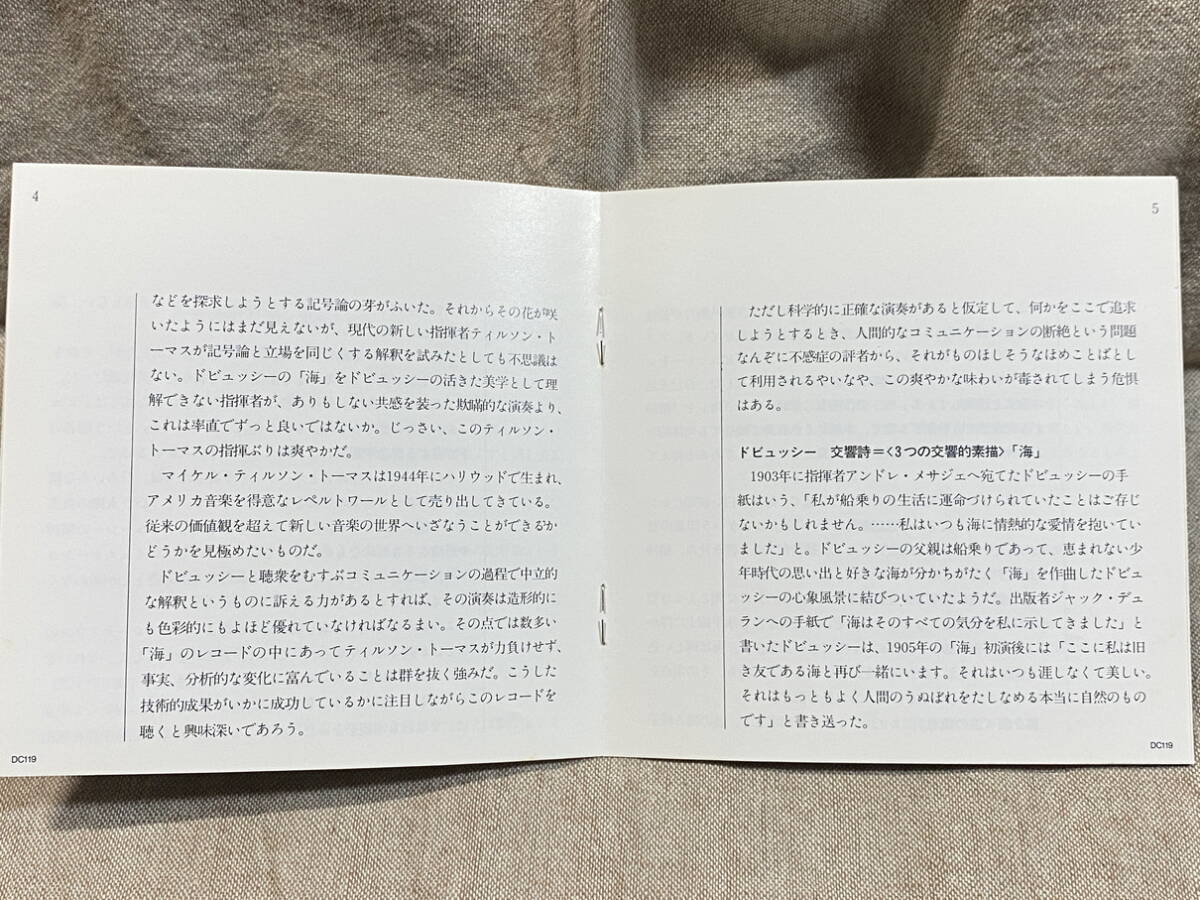 4
などを探求しようとする記号論の芽がふいた。それからその花が咲
いたようにはまだ見えないが、現代の新しい指揮者ティルソン・ト
ーマスが記号論と立場を同じくする解釈を試みたとしても不思議は
ない。ドビュッシーの「海」をドビュッシーの活きた美学として理
解できない指揮者が、ありもしない共感を装った欺瞞的な演奏より、
これは率直でずっと良いではないか。じっさい、このティルソン・
トーマスの指揮ぶりは爽やかだ。
マイケル・ティルソン・トーマスは1944年にハリウッドで生まれ、
アメリカ音楽を得意なレペルトワールとして売り出してきている。
従来の価値観を超えて新しい音楽の世界へいざなうことができるか
どうかを見極めたいものだ。
ドビュッシーと聴衆をむすぶコミュニケーションの過程で中立的
な解釈というものに訴える力があるとすれば、その演奏は造形的に
も色彩的にもよほど優れていなければなるまい。その点では数多い
「海」のレコードの中にあってティルソン・トーマスが力負けせず、
事実、分析的な変化に富んでいることは群を抜く強みだ。こうした
技術的成果がいかに成功しているかに注目しながらこのレコードを
聴くと興味深いであろう。
DC119
5
ただし科学的に正確な演奏があると仮定して、何かをここで追求
しようとするとき、人間的なコミュニケーションの断絶という問題
なんぞに不感症の評者から、それがものほしそうなほめことばとし
て利用されるやいなや、この爽やかな味わいが毒されてしまう危惧
はある。
ドビュッシー 交響詩=〈3つの交響的素描〉「海」
1903年に指揮者アンドレ・メサジェへ宛てたドビュッシーの手
紙はいう、「私が船乗りの生活に運命づけられていたことはご存じ
ないかもしれません。……私はいつも海に情熱的な愛情を抱いてい
ました」と。ドビュッシーの父親は船乗りであって、恵まれない少
年時代の思い出と好きな海が分かちがたく「海」を作曲したドビュ
ッシーの心象風景に結びついていたようだ。出版者ジャック・デュ
ランへの手紙で「海はそのすべての気分を私に示してきました」と
書いたドビュッシーは、1905年の「海」初演後には「ここに私は旧
き友である海と再び一緒にいます。それはいつも涯しなくて美しい。
それはもっともよく人間のうぬぼれをたしなめる本当に自然のもの
です」と書き送った。
DC119